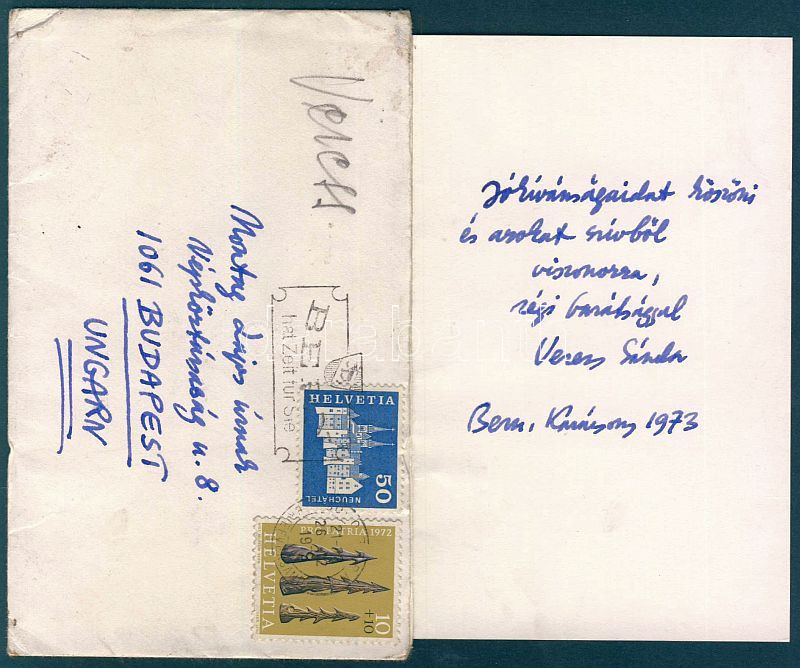 Veress
Montag Lajos úrnak
Népköztársaság u. 8.
1061 BUDAPEST
UNGARN
BE
hat Zeit für Sie
HELVETIA
50
NEUCHÂTEL
PRO PATRIA 1972
HELVETIA
10
+10
Jókívánságaidat köszöni
és azokat szívből
viszonozza,
régi barátsággal
Veress Sándor
Bern, Karácsony 1973